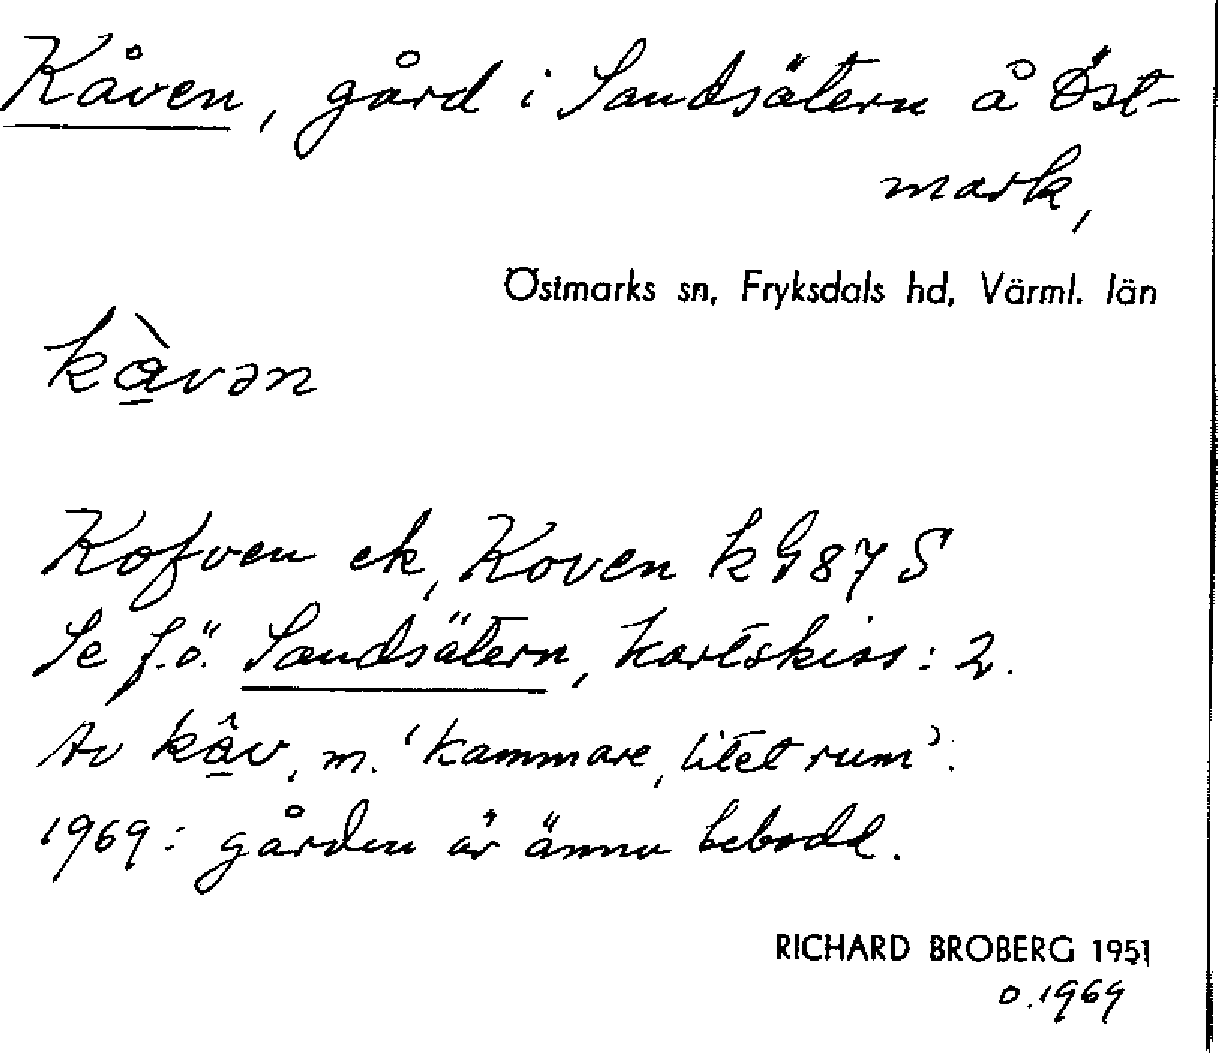 Kåven, gård i Sandsätern å Öst-
mark,
Östmarks sn, Fryksdals hd, Värml. län
kὰ̱vən
Kofven ek, Koven k G 87 S
Se f.ö. Sandsätern, kartskiss: 2.
Av kα̱̂v, m. 'kammare, litet rum'.
1969: gården är ännu bebodd.
RICHARD BROBERG 1951
o. 1969